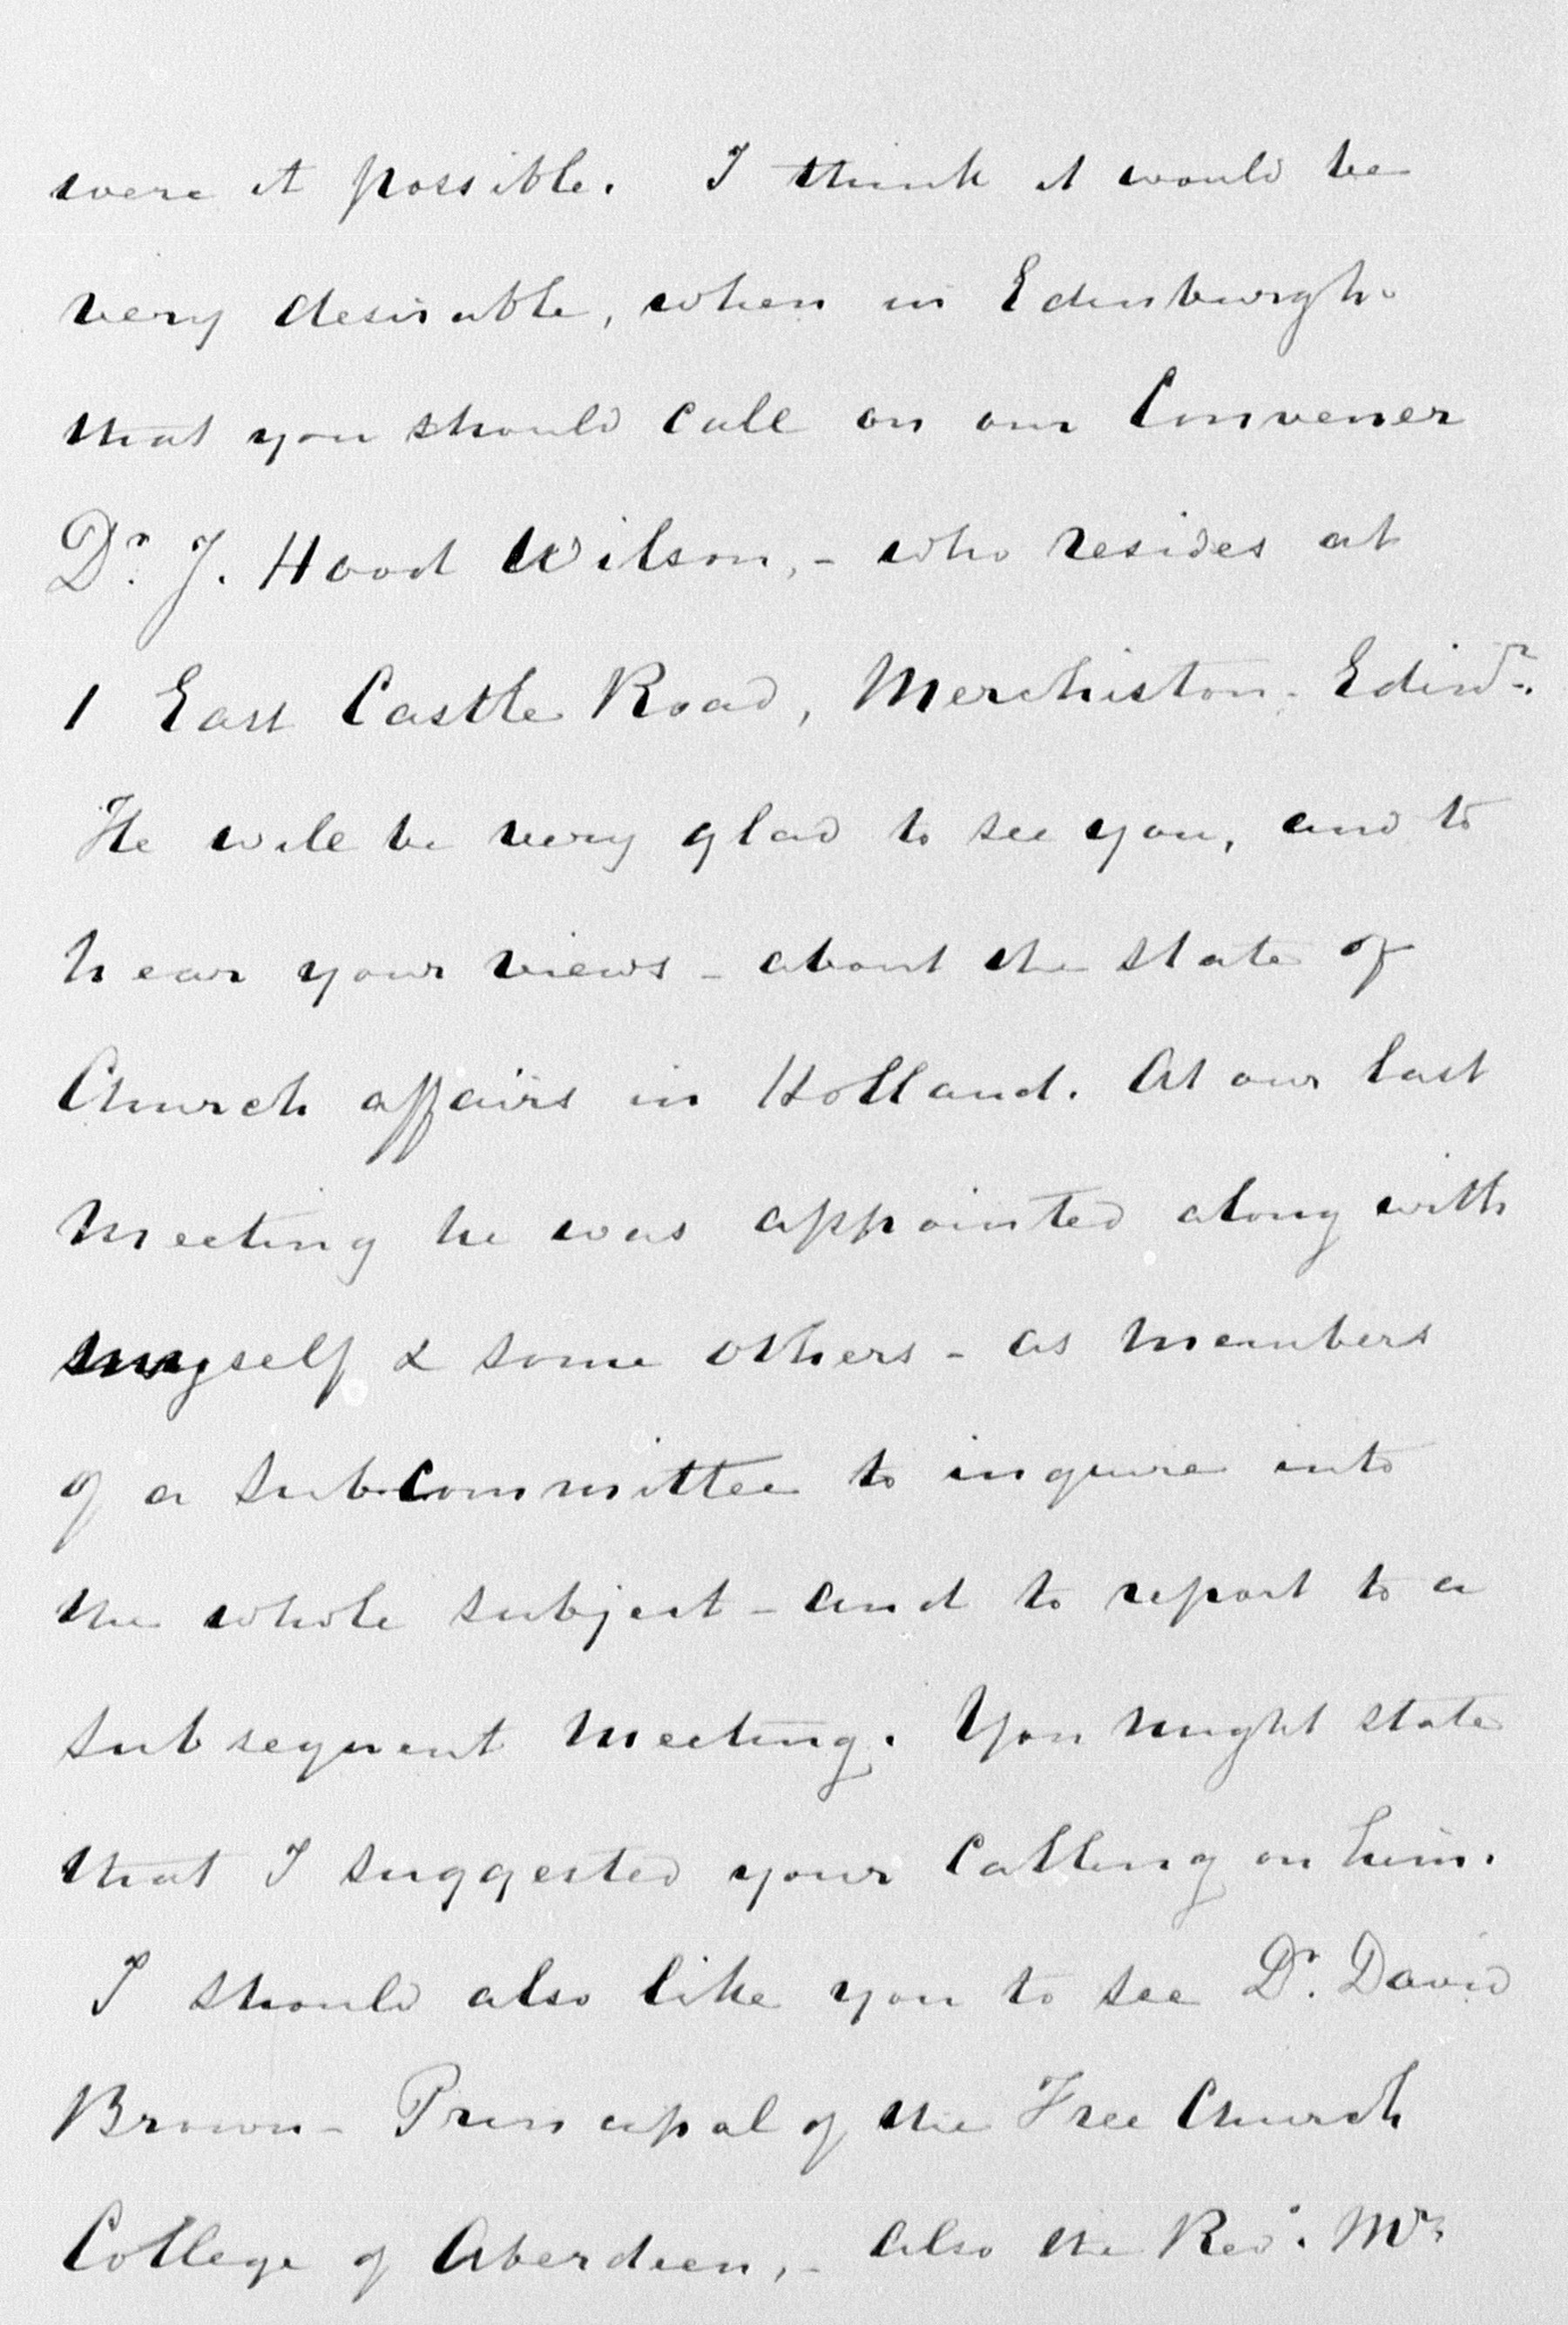 were it possible. I think it would be
very desirable, when in Edinburgh.
that you should call on our Convener
Dr. J. Hood Wilson, - who resides at
1 East Castle Road, Merchiston - Edinr.
He will be very glad to see you, and to
hear your views - about the state of
Church affairs in Holland. At our last
meeting he was appointed along with
myself & some others - as members
of a Subcommittee to inquire into
the whole subject - and to report to a
subsequent meeting. You might state
that I suggested your calling on him.
I should also like you to see Dr. David
Brown - Principal of the Free Church
College of Aberdeen, - also the Revd. Mr.